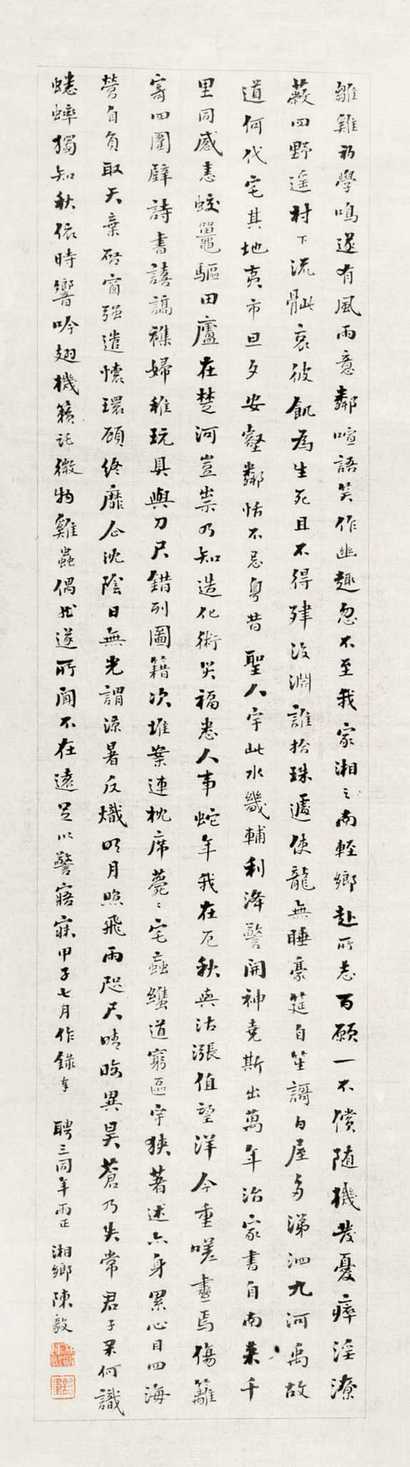 雛雞初學鳴遂有風雨意鄰喧語笑作幽趣忽不至我家湘之南輕鄉赴所志百願一不償隨機發憂瘁淫潦
蔽四野遙村下流胔哀彼飢為生死且不得肆沒淵誰拾珠遽使龍無睡豪筵自笙謌白屋多涕泗九河禹故
道何代宅其地夷市旦夕安壑鄰恬不忌粵昔聖人宇此水畿輔利洚警開神堯斯出萬年治家書自南來千
里同感恚蛟鼉驅田廬在楚河豈祟乃知造化術災福悉人事蛇年我在厄秋與沽漲值望洋今重嗟畫焉傷籬
寄四圍壁詩書諺謌襍婦稚玩具與刀尺錯列圖籍次堆案連枕席薨薨宅蟲蠟道窮區宇狹著述亦身累心目四海
營自負取天棄啟窗強遣懷環顧終靡企沈陰日無光謂涼暑反熾明月照飛雨咫尺晴晦異昊蒼乃失常君子果何識
蟋蟀獨知秋依時響吟翅機籟託微物雞蟲偶성遂所聞不在遠足以警寤寐甲子七月作錄奉 聘三同年兩正 湘鄉陳毅